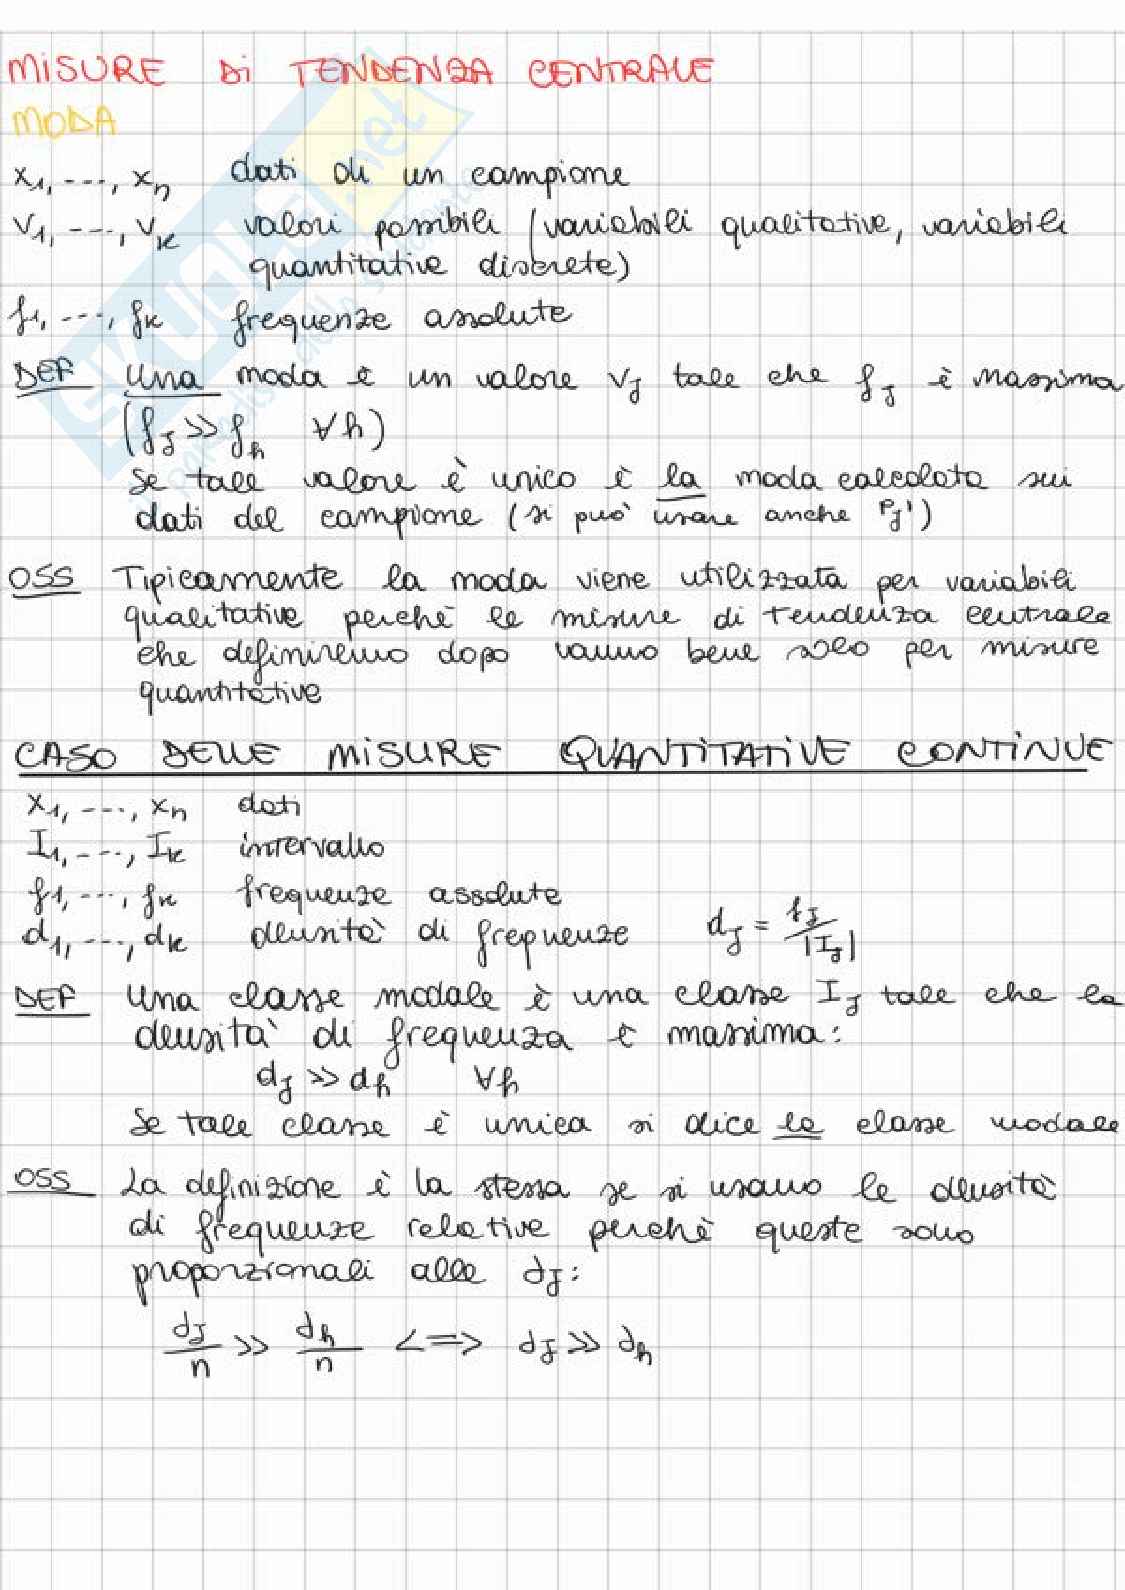 MISURE Di TENDENZA CENTRALE
MODA
x₁, ---, xₙ dati di un campione
v₁, ---, vₖ valori possibili (variabili qualitative, variabili
quantitative discrete)
f₁, ---, fₖ frequenze assolute
DEF Una moda è un valore vⱼ tale che fⱼ è massima
(fⱼ >> fₕ ∀h)
Se tale valore è unico è la moda calcolata sui
dati del campione (si può usare anche Pⱼ')
OSS Tipicamente la moda viene utilizzata per variabili
qualitative perchè le misure di tendenza centrale
che definiremo dopo vanno bene solo per misure
quantitative
CASO DELLE MISURE QUANTITATIVE CONTINUE
x₁, ---, xₙ dati
I₁, ---, Iₖ intervallo
f₁, ---, fₖ frequenze assolute
d₁, ---, dₖ densità di frequenze dⱼ = fⱼ / |Iⱼ|
DEF Una classe modale è una classe Iⱼ tale che la
densità di frequenza è massima:
dⱼ >> dₕ ∀h
Se tale classe è unica si dice la classe modale
OSS La definizione è la stessa se si usano le densità
di frequenze relative perchè queste sono
proporzionali alle dⱼ:
dⱼ/n >> dₕ/n <=> dⱼ >> dₕ
SKUOLA.net